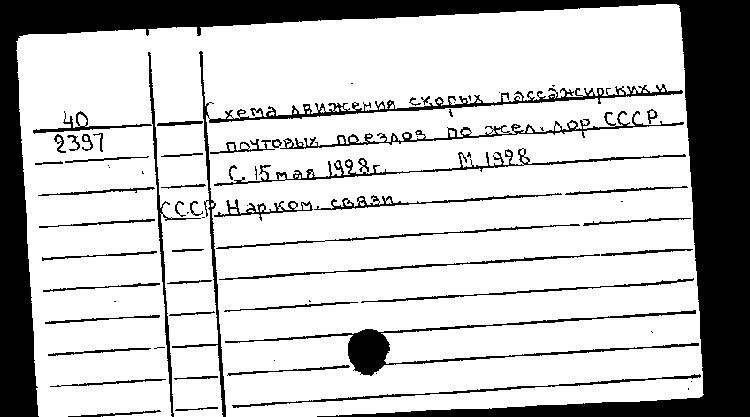 40
2397
Схема движения скорых пассажирских и
почтовых поездов по жел. дор. СССР.
С. 15 мая 1928г. М, 1928
СССР. Нар.ком. связи.